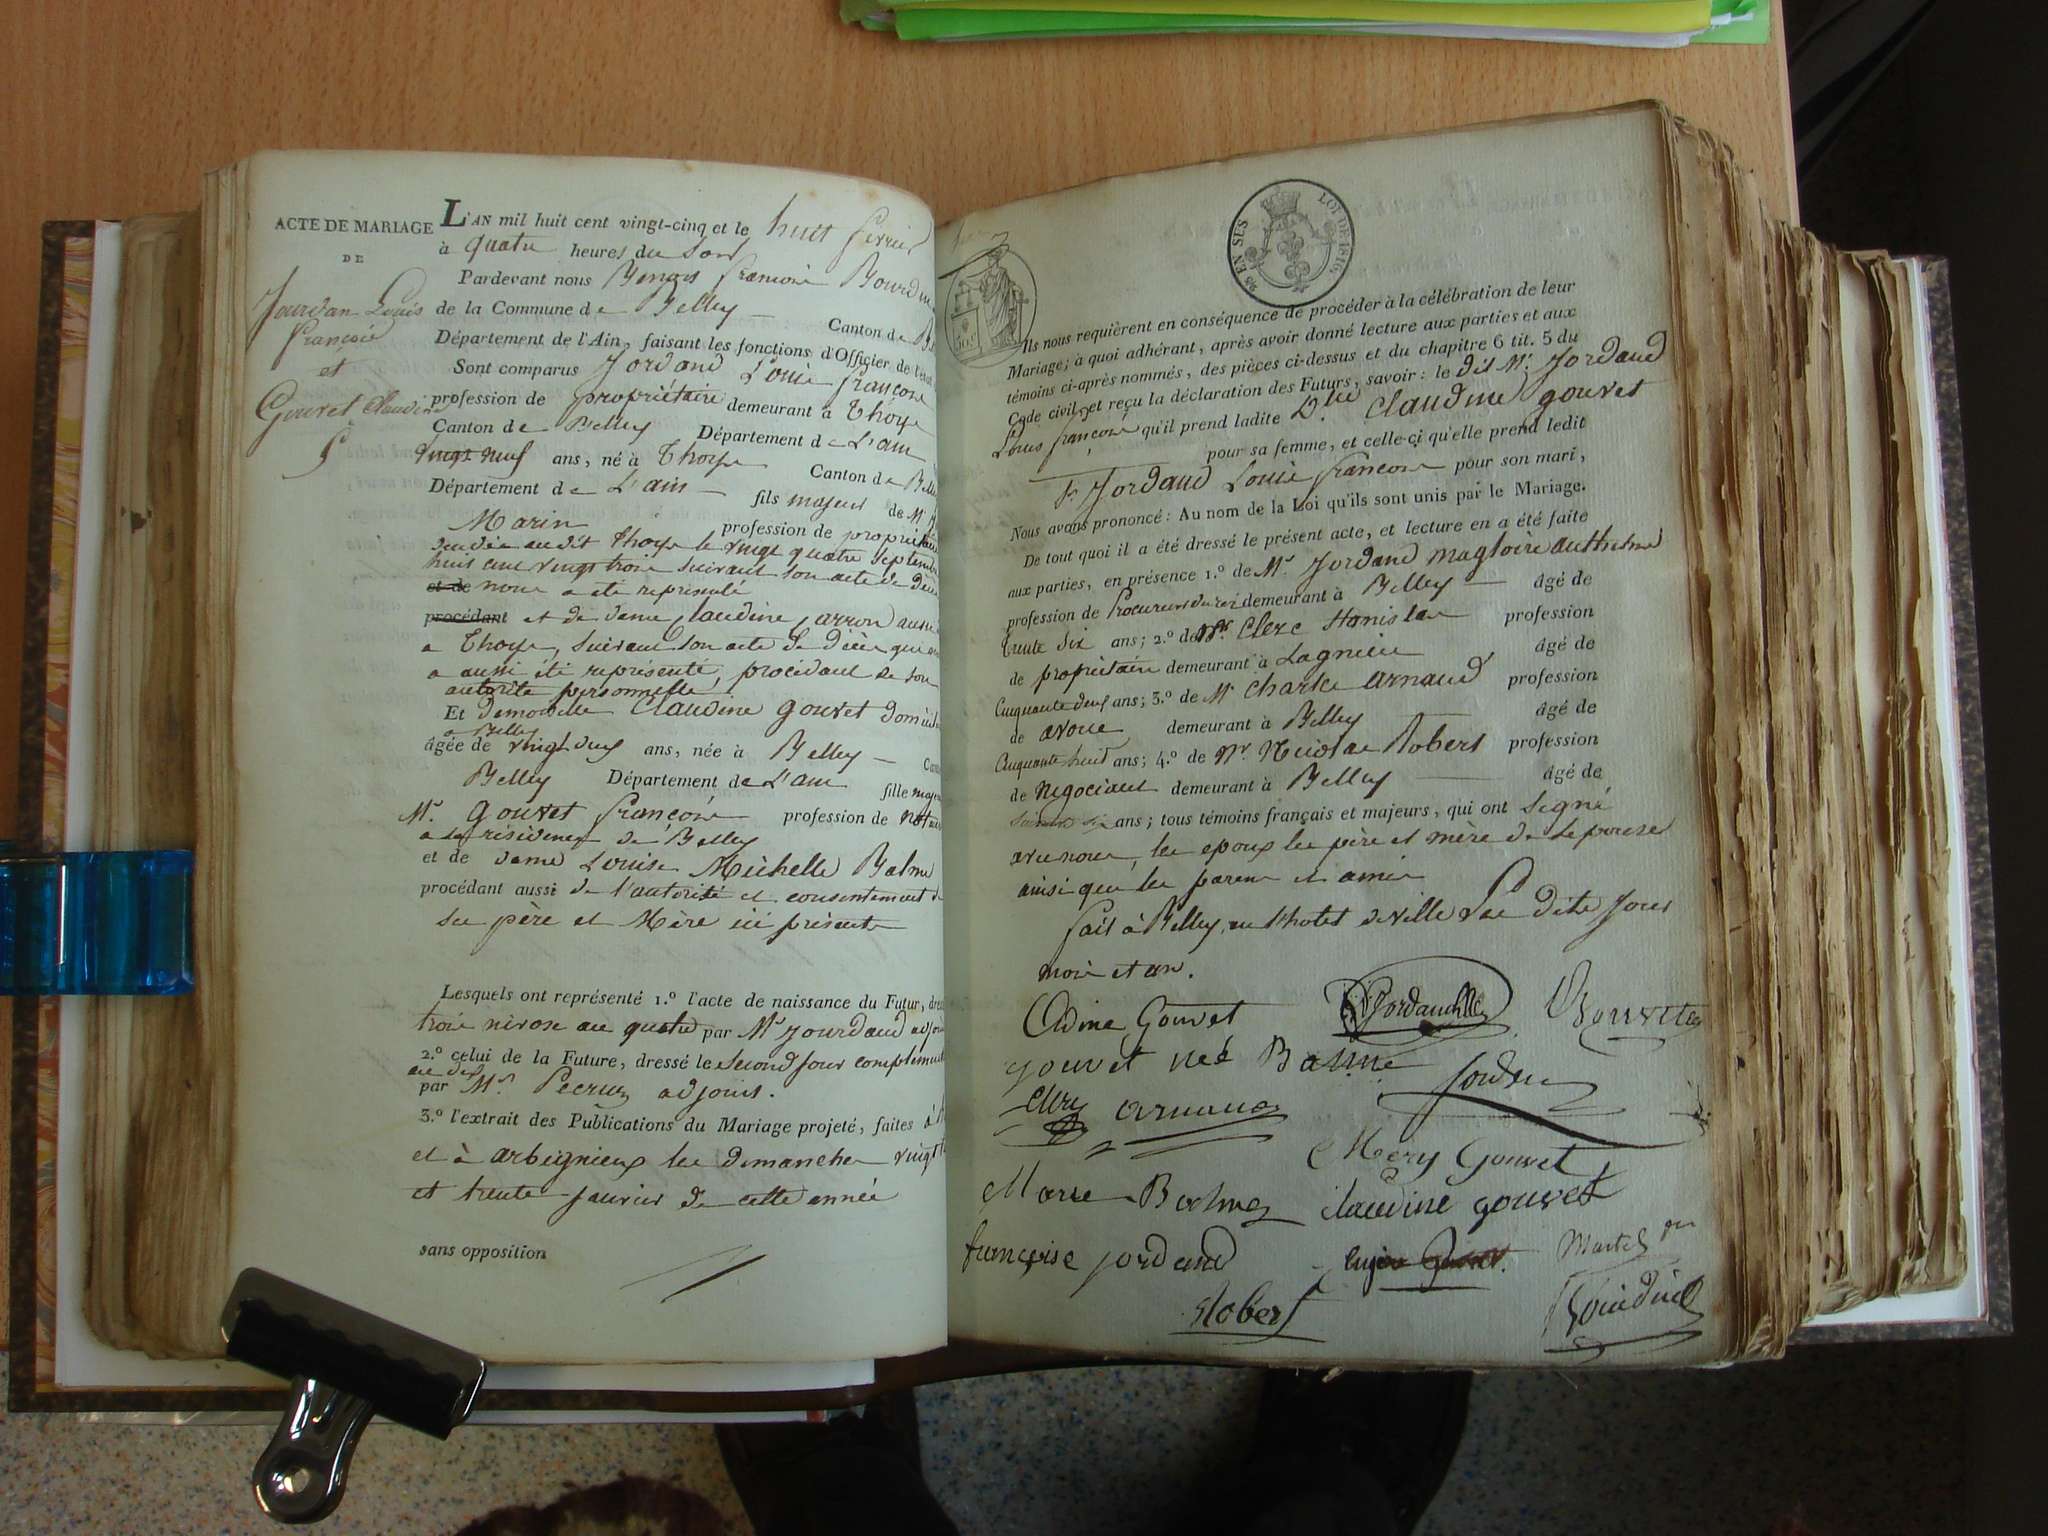 ACTE DE MARIAGE
DE
Jourdan Louis
françois
et
Gouvet Claudine
L'AN mil huit cent vingt-cinq et le huit février
à quatre heures du soir
Pardevant nous françois
de la Commune de Belley Canton de
Département de l'Ain, faisant les fonctions d'Officier de l'état
Sont comparus Jordand Louis françois
profession de propriétaire demeurant à Thoys
Canton de Belley Département de L'ain
vingt neuf ans, né à Thoys Canton de Belley
Département de L'ain fils majeur de Mr
Marin profession de propriétaire
audit thoys le vingt quatre septembre
huit cent vingt trois suivant son acte de
et de nous a été représenté
procédant et de dame Claudine aussi
a Thoys, suivant son acte de décès qui
a aussi été représenté, procédant de son
autorité personnelle
Et demoiselle Claudine gouvet
a Belley
âgée de vingt deux ans, née à Belley
Belley Département de L'ain fille
Mr. gouvet françois profession de
a la résidence de Belley
et de dame Louise Michelle Balme
procédant aussi de l'autorité et consentement de
ses père et Mère ici présents
Lesquels ont représenté 1.º l'acte de naissance du Futur,
trois nivose an quatre par Mr Jourdand adjoint
2.º celui de la Future, dressé le second jour
an dix
par Mr. adjoint.
3.º l'extrait des Publications du Mariage projeté, faites à
et à arbignieux les dimanches vingt
et trente janvier de cette année
sans opposition
LOI DE 1816
Ils nous requièrent en conséquence de procéder à la célébration de leur
Mariage; à quoi adhérant, après avoir donné lecture aux parties et aux
témoins ci-après nommés, des pièces ci-dessus et du chapitre 6 tit. 5 du
Code civil, et reçu la déclaration des Futurs, savoir: le dit Mr. Jordand
Louis françois qu'il prend ladite Dlle Claudine gouvet
pour sa femme, et celle-ci qu'elle prend ledit
Jordand Louis françois pour son mari,
Nous avons prononcé: Au nom de la Loi qu'ils sont unis par le Mariage.
De tout quoi il a été dressé le présent acte, et lecture en a été faite
aux parties, en présence 1.º de Mr. Jordand magloire anthelme
profession de Procureur du roi demeurant à Belley âgé de
trente six ans; 2.º de Mr. Clerc Stanislas profession
de propriétaire demeurant à Lagnieu âgé de
Cinquante deux ans; 3.º de Mr Charles arnaud profession
de avoué demeurant à Belley âgé de
Cinquante huit ans; 4.º de Mr Nicolas Robert profession
de Négociant demeurant à Belley âgé de
ans; tous témoins français et majeurs, qui ont signé
avec nous, les epoux les père et mère de Lepouse
ainsi que les parens et amis
fait à Belley, en l'hotel de ville Les dits jour
mois et an.
Gouvet
gouvet née Balme
arnaud
Mery Gouvet
Marie Balme claudine gouvet
françoise jordand
Robert